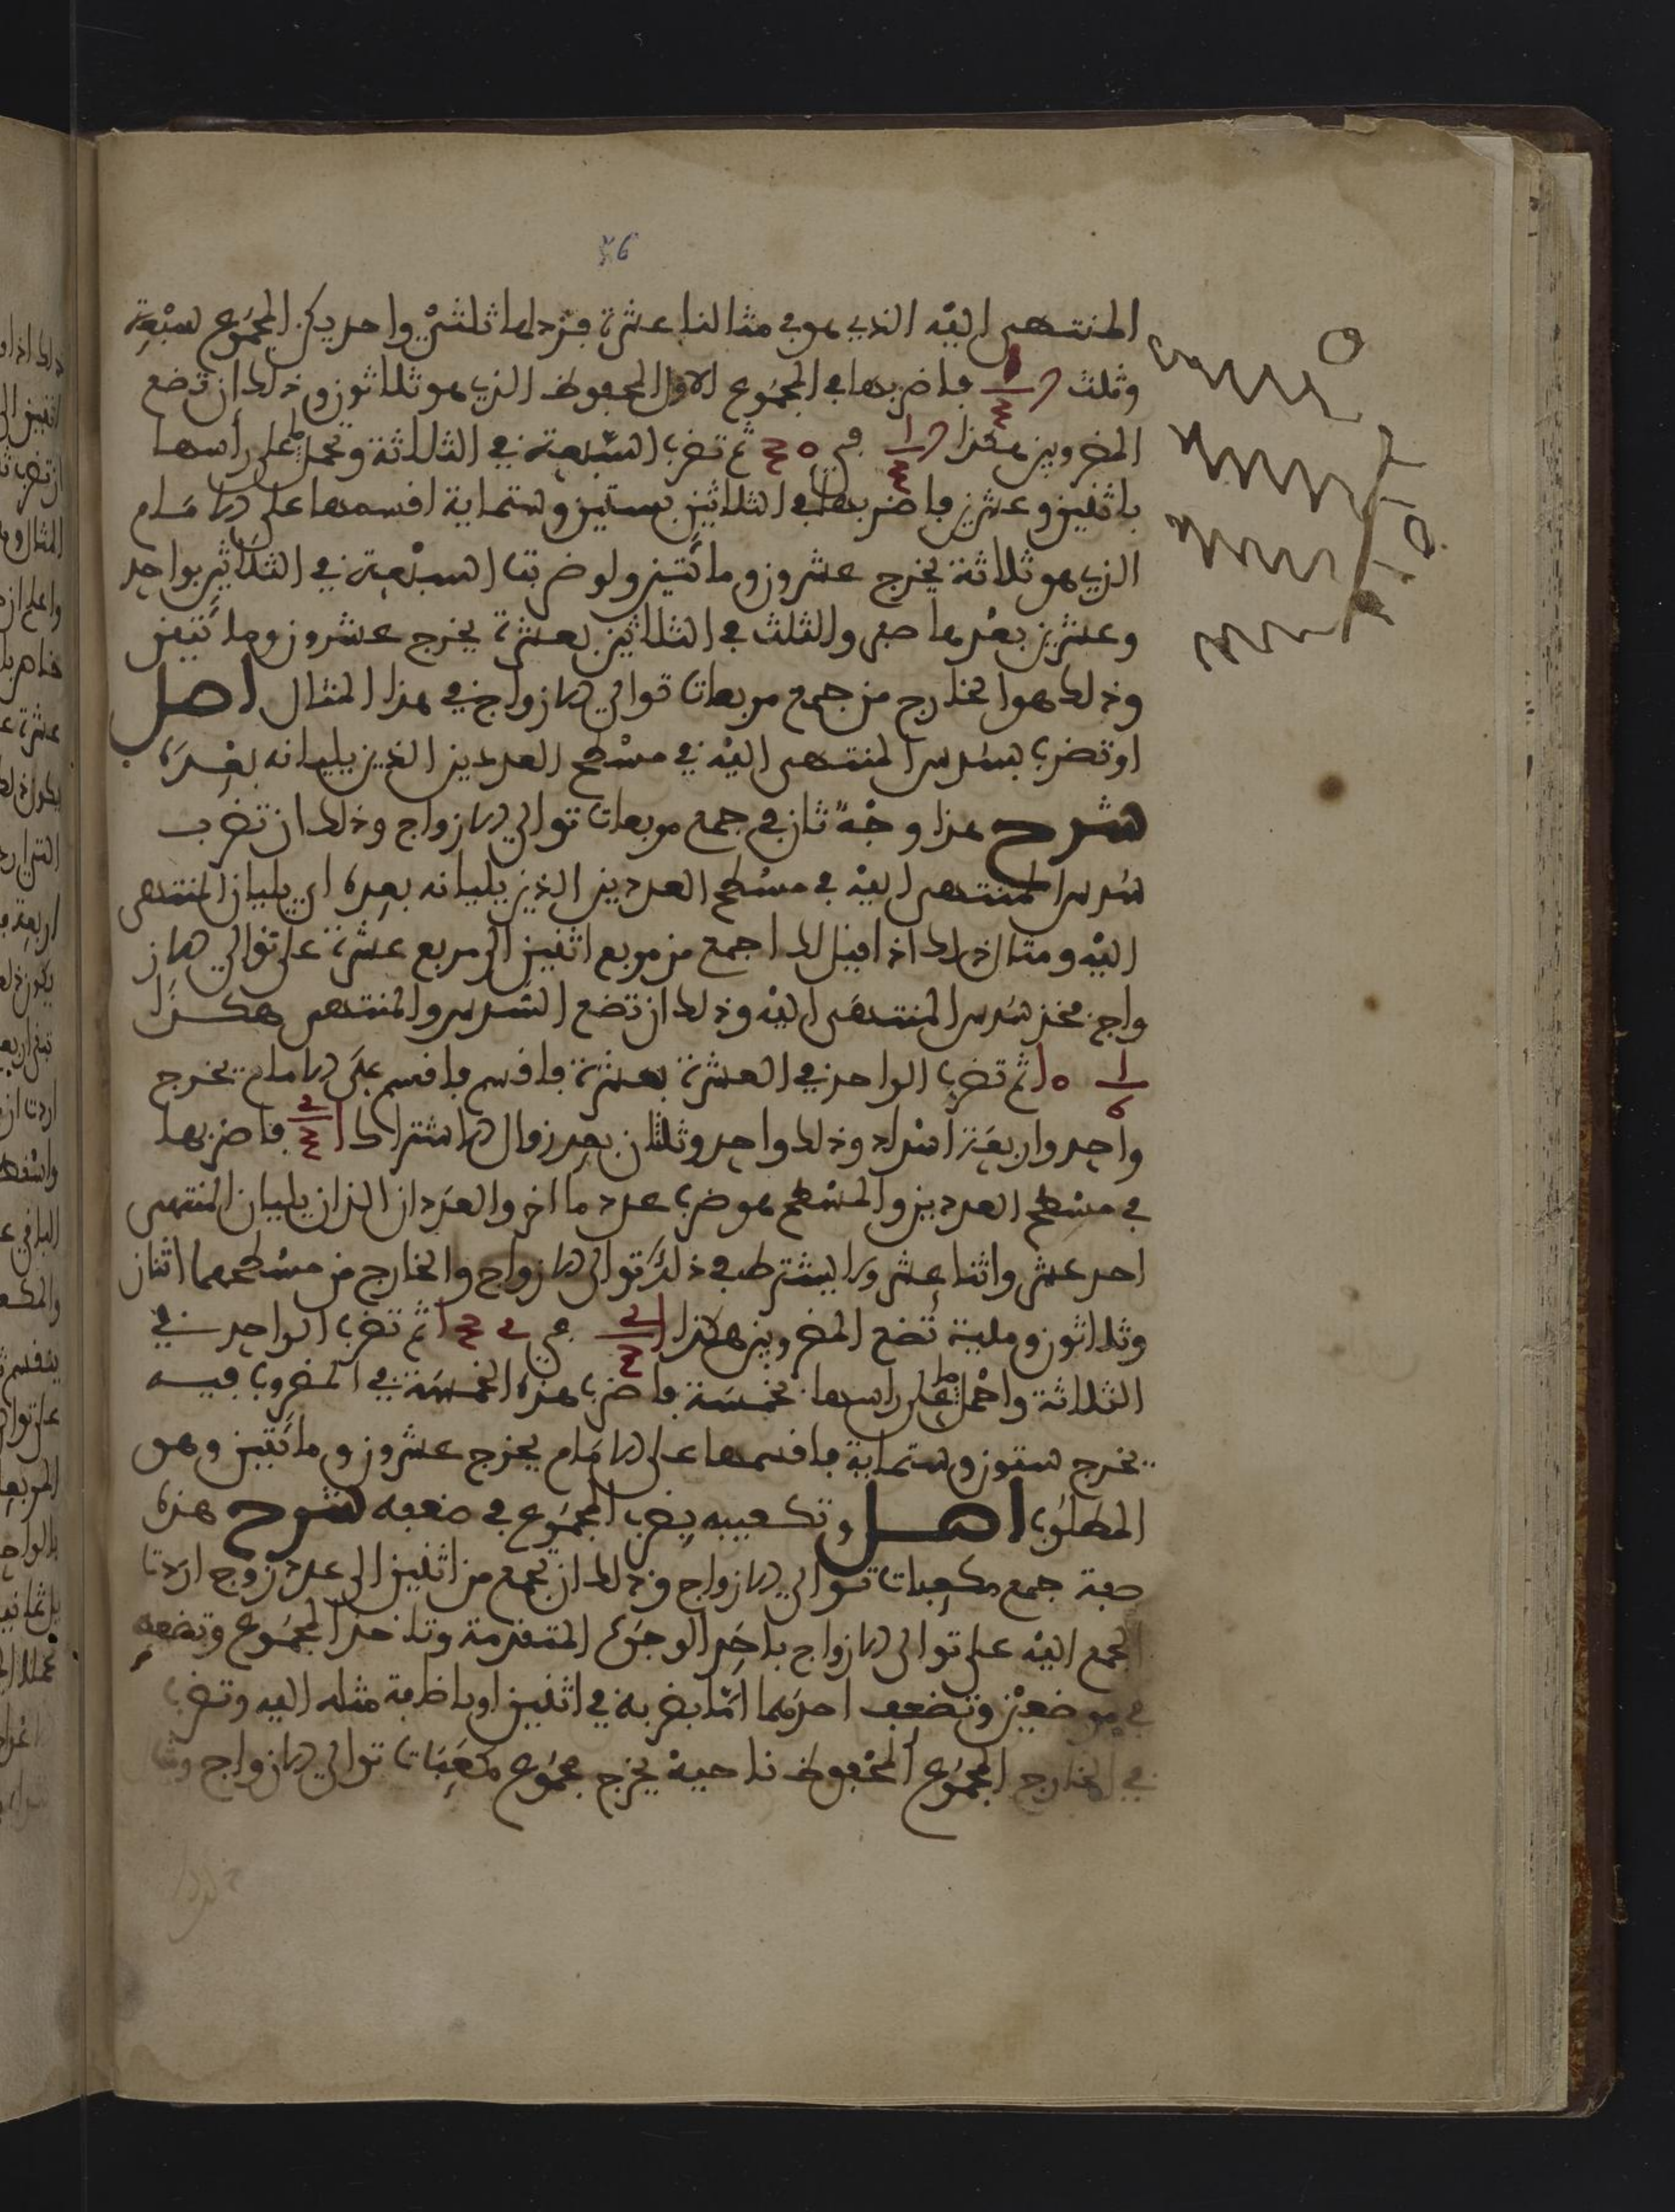 56
المنتهى اليه الذي هو في مثالنا عشرة فزد لها ثلثي واحد يكن المجموع سبعة
وثلث فاضربها في المجموع الاول المحفوظ الذي هو ثلاثون وذلك ان تضع
المضروبين هكذا في ٥ ثم تضرب السبعة في الثلاثة وتحمل على رأسها
باثنين وعشرين فاضربها في الثلاثين بستين وستماية اقسمها على الامام
الذي هو ثلاثة يخرج عشرون ومائتين ولو ضربت السبعة في الثلاثين بواحد
وعشرين بعدها صفر والثلث في الثلاثين بعشرة يخرج عشرون ومائتين
وذلك هو الخارج من جمع مربعات توالي الازواج في هذا المثال اصل
او تضرب سدس المنتهى اليه في مسطح العددين الذين يليانه بعده
شرح هذا وجه ثان في جمع مربعات توالي الازواج وذلك ان تضرب
سدس المنتهى اليه في مسطح العددين الذين يليانه بعده اي يليان المنتهى
اليه ومثال ذلك اذا قيل لك اجمع من مربع اثنين الى مربع عشرة على توالي الاز
واج فخذ سدس المنتهى اليه وذلك ان تضع السدس والمنتهى هكذا
١/٦ ١٥ ثم تضرب الواحد في العشرة بعشرة فاقسم فاقسم على الامام يخرج
واحد واربعة اسداس وذلك واحد وثلثان بعد زوال الاشتراك فاضربها
في مسطح العددين والمسطح هو ضرب عدد ما اخر والعددان اللذان يليان المنتهى
احد عشر واثنا عشر ولا يشترط في ذلك توالي الازواج والخارج من مسطحهما اثنان
وثلاثون وماية تضع المضروبين هكذا في ثم تضرب الواحد في
الثلاثة واحمل على راسها بخمسة فاضرب هذه الخمسة في المضروب فيه
يخرج ستون وستماية فاقسمها على الامام يخرج عشرون ومائتين وهو
المطلوب اصل وتكعيبه بضرب المجموع في ضعفه شرح هذه
صفة جمع مكعبات توالي الازواج وذلك ان تجمع من اثنين الى عدد زوج اردت
الجمع اليه على توالي الازواج باحد الوجوه المتقدمة وتاخذ المجموع وتضعه
في موضعين وتضعف احدهما اما بضربه في اثنين او باضافة مثله اليه وتضرب
في الخارج المجموع المحفوظ ناحية يخرج مجموع مكعبات توالي الازواج